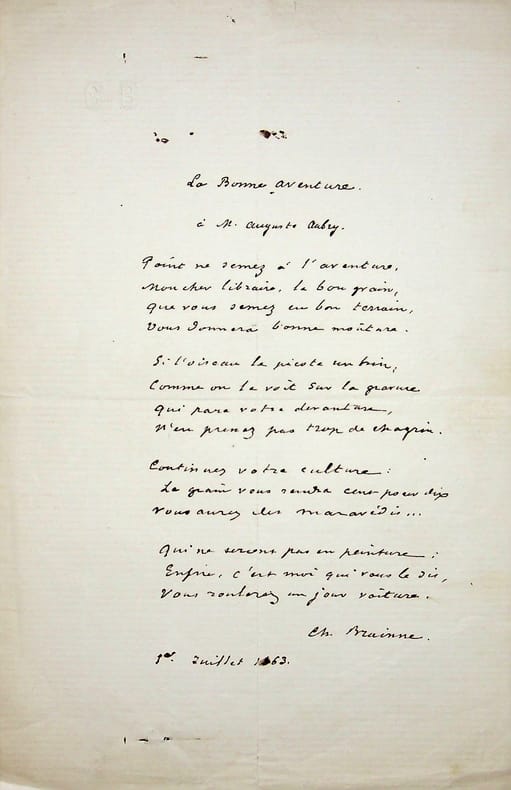 La Bonne aventure.
à M. Auguste Aubry.
Point ne semez à l'aventure,
Mon cher libraire, le bon grain,
Que vous semez en bon terrain,
Vous donnera bonne moûture.
Si l'oiseau le picote un brin,
Comme on le voit sur la gravure
Qui pare votre devanture,
N'en prenez pas trop de chagrin.
Continuez votre culture :
Le grain vous rendra cent pour dix
Vous aurez des maravédis...
Qui ne seront pas en peinture ;
Enfin, c'est moi qui vous le dis,
Vous roulerez un jour voiture.
Ch. Brainne.
1er Juillet 1863.